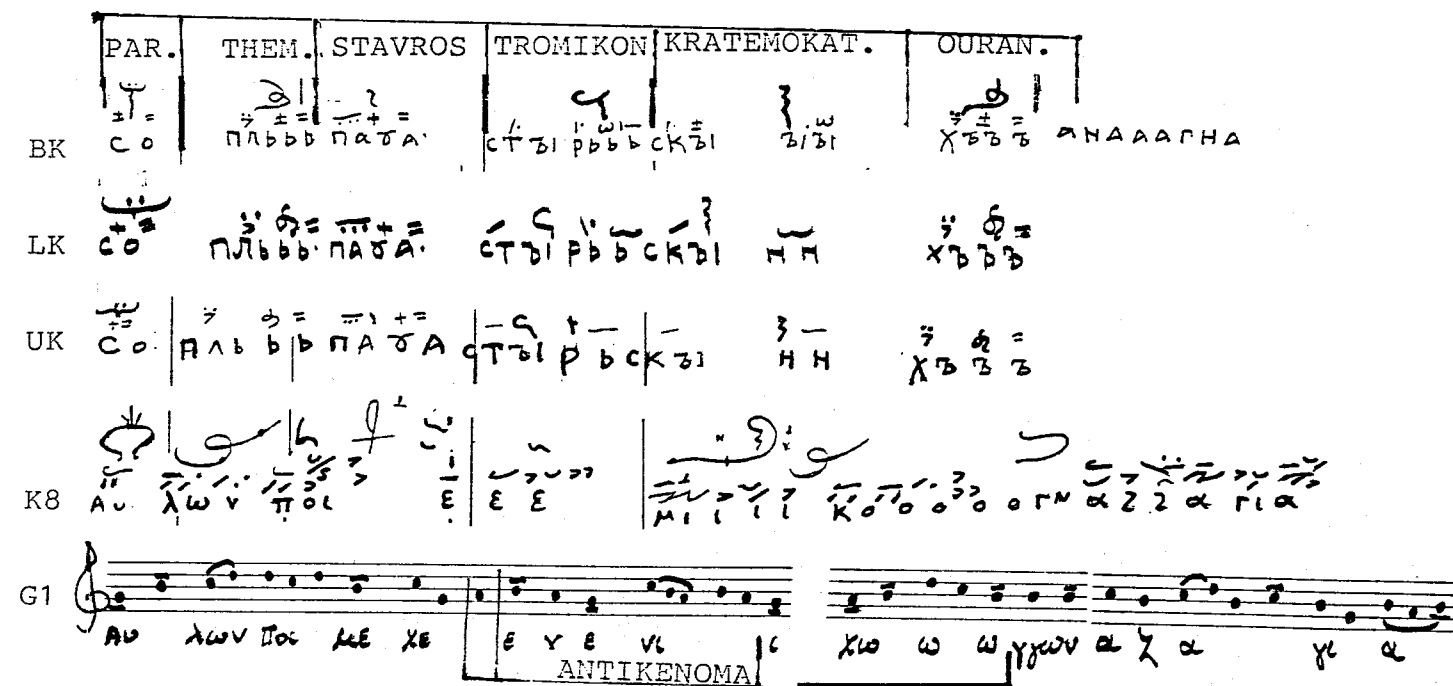 PAR. THEM. STAVROS TROMIKON KRATEMOKAT. OURAN.
BK СО ПЛЬЬЬ ПАꙊА· СТЪІ РЬЬЬ СКЪІ ЪІЪІ ХЪЪЪ АНАААГНА
LK СО ПЛЬЬЬ· ПАꙊА· СТЪІ РЬЬ СКЪІ НН ХЪЪЪ
UK СО ПЛЬ ЬЬ ПАꙊА СТЪІ РЬ СКЪІ НН ХЪЪЪ
K8 Αυ λων ποι ε ε ε μι ι ι ι κο ο ο ο ο α γι α
G1 Αυ λων ποι με χε ε ν ε νι ι χιο ω ω γγων α ζ α γι α
ANTIKENOMA